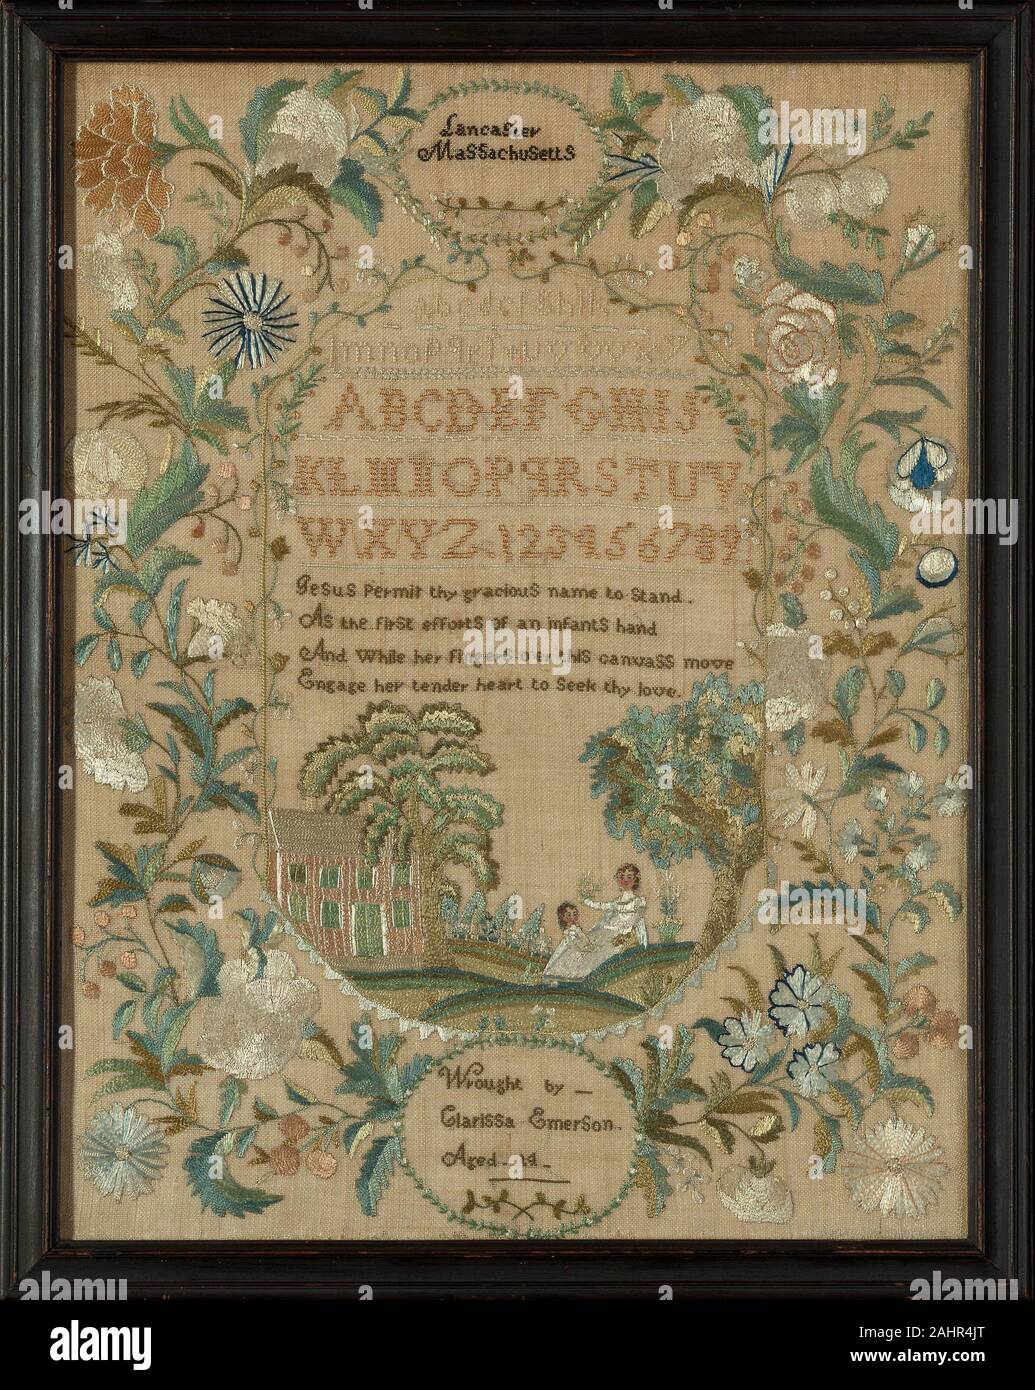 Lancaster
Massachusetts
ABCDEFGHIJ
KLMNOPQRSTUV
WXYZ 123456789
Jesus Permit thy gracious name to stand.
As the first efforts of an infants hand
And While her fingers o er this canvass move
Engage her tender heart to Seek thy love.
Wrought by —
Clarissa Emerson.
Aged 14
alamy
Image ID: 2AHR4JT
www.alamy.com